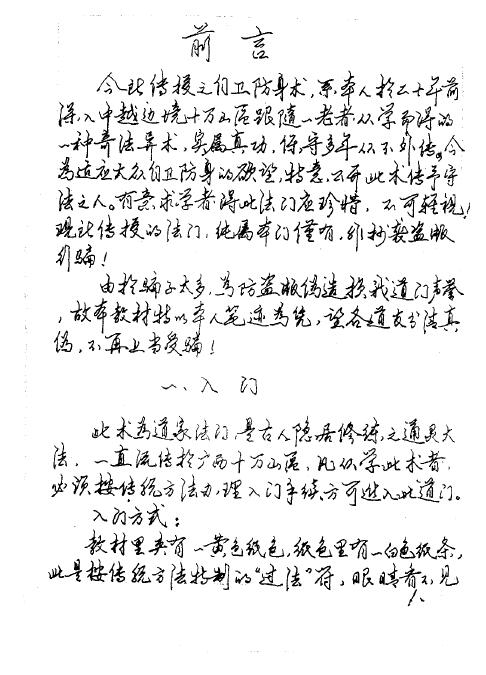 前言
今此传授之自卫防身术，系本人于二十年前
深入中越边境十万山区跟随一老者从学而得的
一种奇法异术，实属真功，保守多年从不外传。今
为适应大众自卫防身的欲望，特意公开此术传予守
法之人。有意求学者得此法门应珍惜，不可轻视！
现此传授的法门，纯属本门仅有，非抄袭盗版
行骗！
由于骗子太多，为防盗版伪造损我道门声誉
，故本教材特以本人笔迹为凭，望各道友分清真
伪，不再上当受骗！
一、入门
此术为道家法门，是古人隐居修练之通灵大
法，一直流传于广西十万山区，凡从学此术者，
必须按传统方法办理入门手续方可进入此道门。
入门方式：
教材里夹有一黄色纸包，纸包里有一白色纸条，
此是按传统方法特制的“过法”符，眼睛看不见